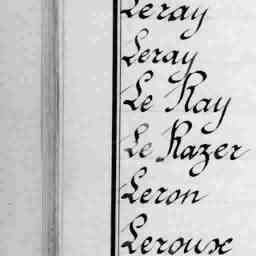 Leray
Leray
Le Ray
Le Razer
Leron
Leroux